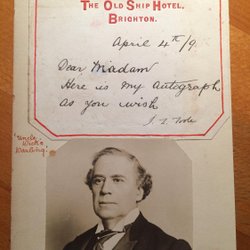 THE OLD SHIP HOTEL,
BRIGHTON.
April 4th/9
Dear Madam
Here is my autograph
as you wish
J. L. Toole
"Uncle
Dick's
Darling"